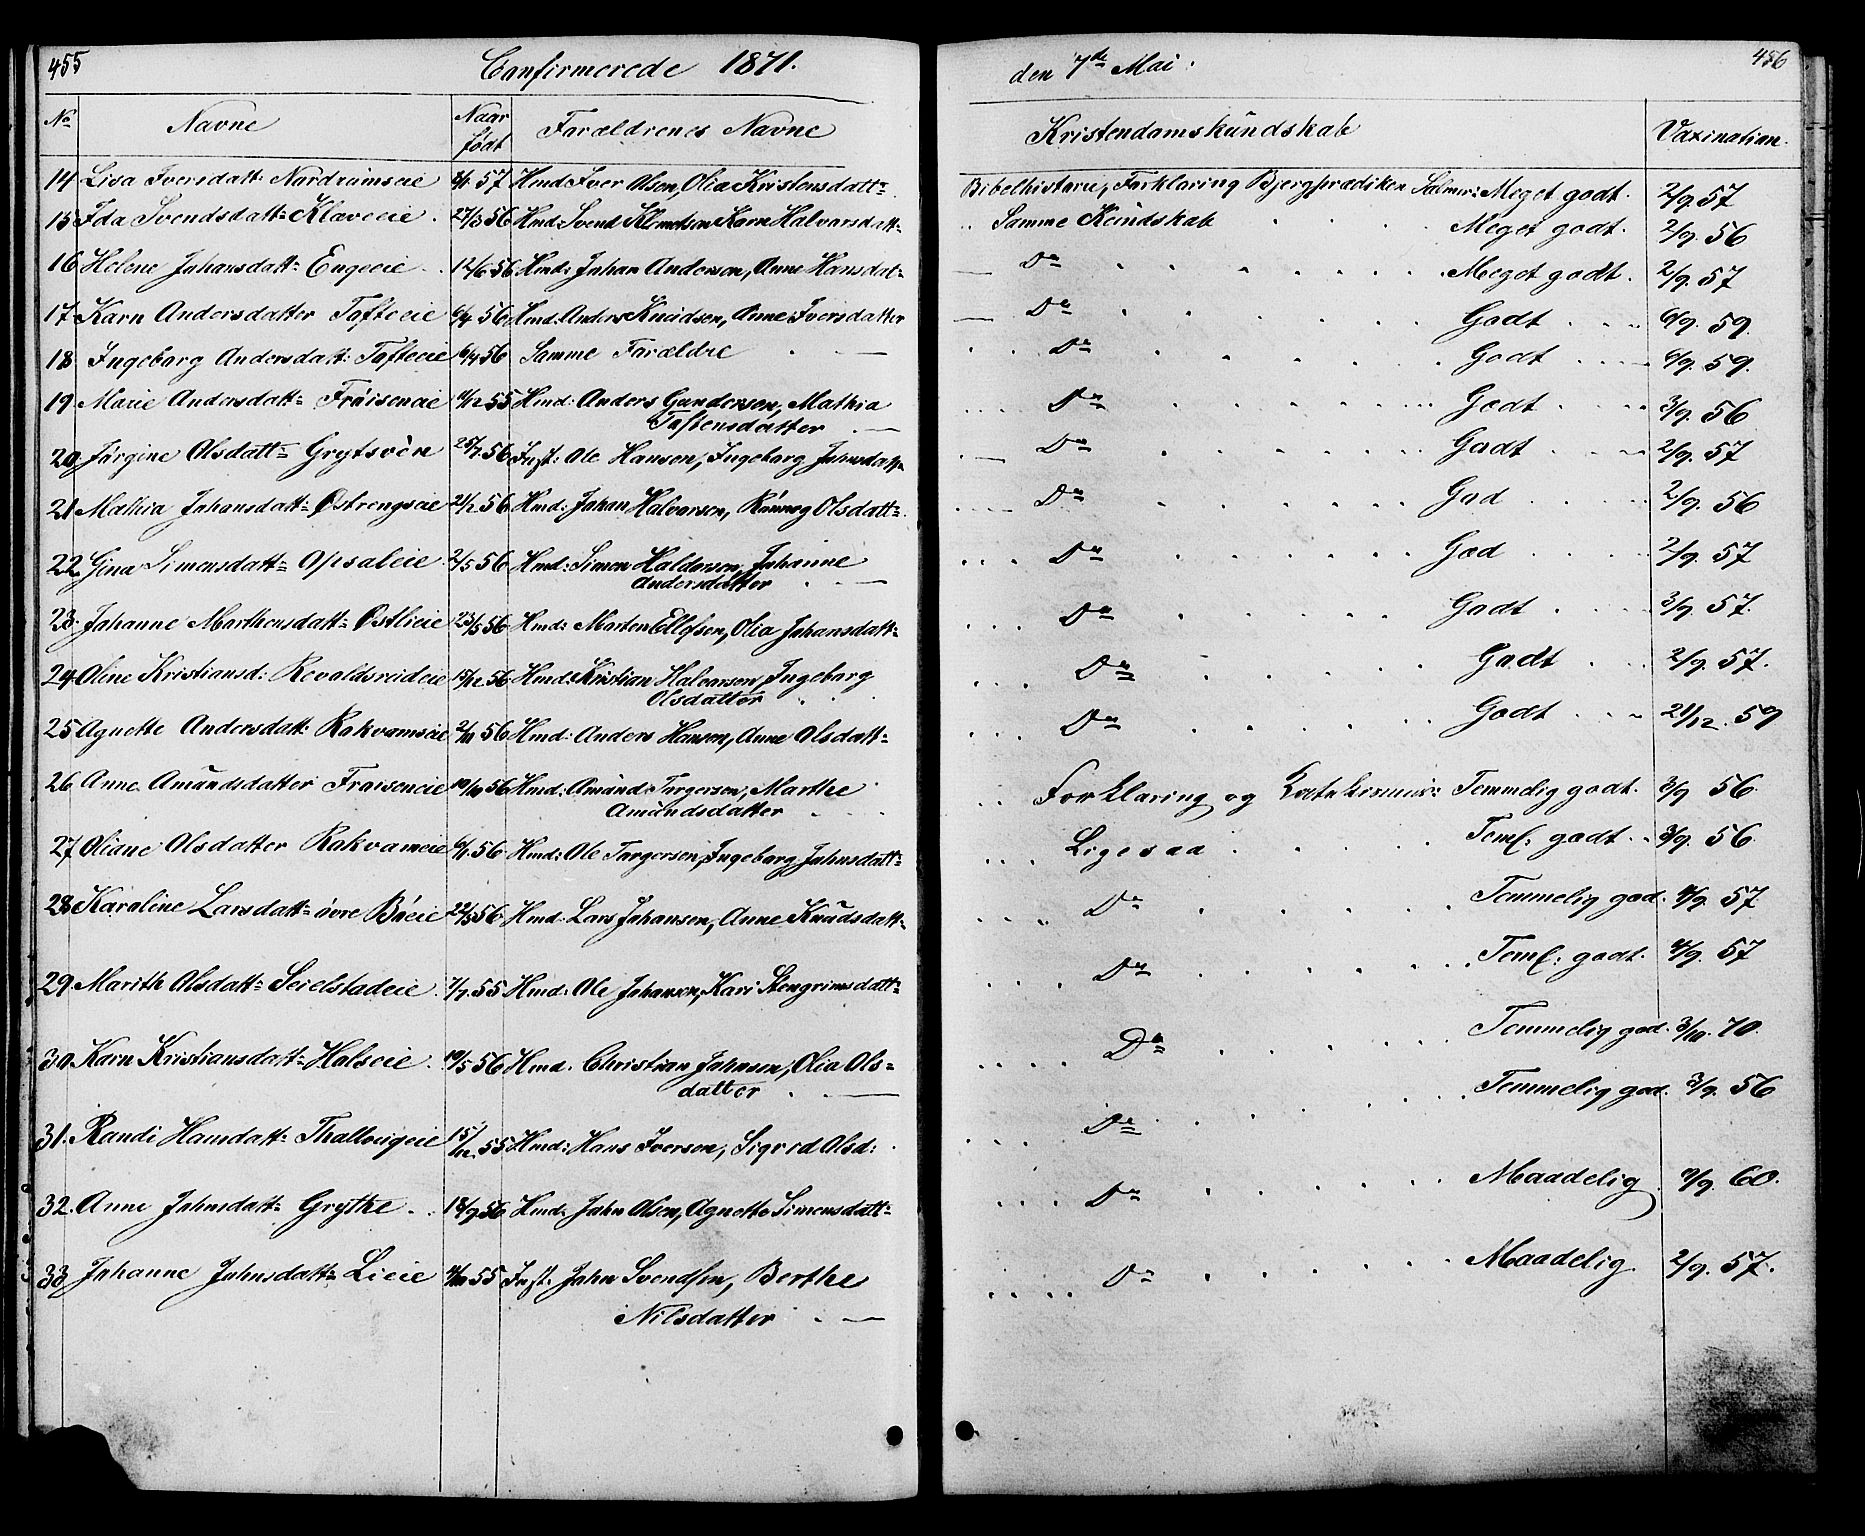 455
Confirmerede 1871.
No Navne Naar født Forældrenes Navne
14 Lisa Iversdatt: Nordrumseie 57 Hmd Iver Olsen, Olia Kristensdatt:
15 Ida Svendsdatt: Klaveeie 27/3 56 Hmd: Svend Klemetsen Karn Halvorsdatt:
16 Helene Johansdatt: Engeeie 12/6 56 Hmd: Johan Anderson, Anne Hansdat:
17 Karn Andersdatter Tofteeie 6/4 56 Hmd: Anders Knudsen, Anne Iversdatter
18 Ingeborg Andersdatt: Tofteeie 6/4 56 Samme Forældre
19 Marie Andersdatt: Frøiseneie 55 Hmd: Anders Gunderson, Mathia
Tostensdatter
20 Jørgine Olsdatt: Grytsvèn 56 Inst: Ole Hansen, Ingeborg Johnsdatt
21 Mathia Johansdatt: Østrengseie 21/2 56 Hmd: Johan Halvorsen, Rønnog Olsdatt:
22 Gina Simensdatt: Opsaleie 2/5 56 Hmd: Simon Haldorson, Johanne
Andersdatter
23. Johanne Marthensdatt: Østlieie 23/5 56 Hmd: Marten Ellefsen, Olia Johansdatt:
24 Oline Kristiansd: Revaldsreideie 56 Hmd: Kristian Halvorson, Ingeborg
Olsdatter
25 Agnette Andersdatt: Rakvameie 2/11 56 Hmd: Anders Hanson, Anne Olsdatt:
26 Anne Amundsdatter Frøiseneie 10/10 56 Hmd: Amund Torgerson, Marthe
Amundsdatter
27 Oliane Olsdatter Rakvameie 56 Hmd: Ole Torgerson, Ingeborg Johnsdatt:
28 Karoline Larsdatt: øvre Bøeie 56 Hmd: Lars Johansen, Anne Knudsdatt:
29. Marith Olsdatt: Seielstadeie 55 Hmd: Ole Johanson, Kari Stengrimsdatt:
30 Karn Kristiansdatt: Halseie 10/5 56 Hmd. Christian Johnsen, Olia Ols=
datter
31. Randi Hansdatt: Thallougeie 15/12 55 Hmd: Hans Iverson, Sigrid Olsd:
32. Anne Johnsdatt: Grythe 18/9 56 Hmd: John Olsen, Agnette Simensdatt:
33 Johanne Johnsdatt: Lieie 55 Inst: John Svendsen, Berthe
Nilsdatter
456
den 7de Mai:
Kristendomskundskab Vaxination.
Bibelhistorie, Forklaring Bjergprædiken Salmer: Meget godt. 2/9 57
Samme Kundskab Meget godt. 2/9. 56
Do Meget godt. 2/9. 57
Do Godt 6/9. 59.
Do Godt 6/9. 59.
Do Godt 3/9. 56
Do Godt 2/9. 57
Do God 2/9. 56
Do God 2/9. 57
Do Godt 3/9. 57.
Do Godt 2/9. 57.
Do Godt 21/12. 59
Forklaring og Katekismus: Temmelig godt. 3/9 56
Ligesaa Teml: godt 3/9. 56.
Do Temmelig god. 4/9. 57
Do Teml: godt. 4/9. 57
Do Temmelig god. 3/10. 70.
Do Temmelig god. 3/9. 56
Do Maadelig 60.
Do Maadelig 2/9. 57.